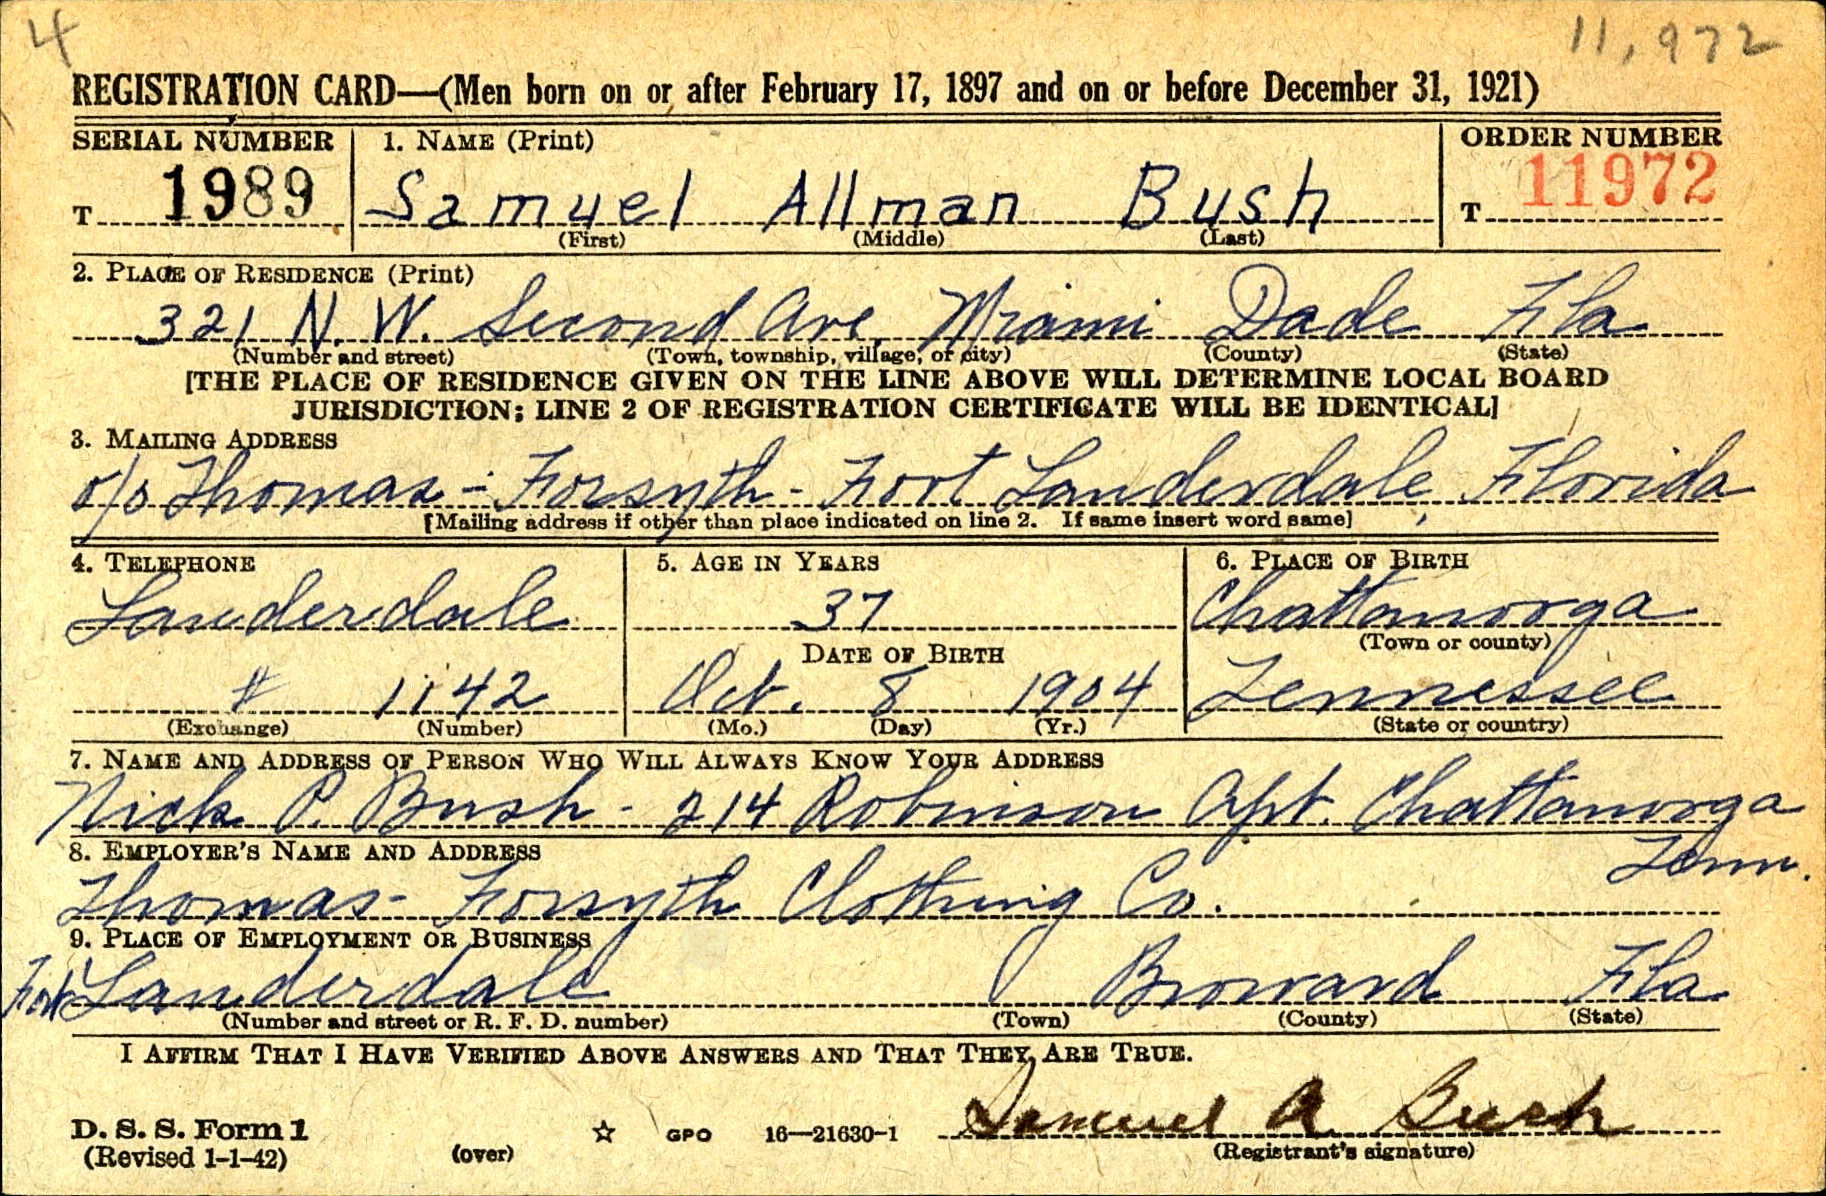 4 11,972
REGISTRATION CARD—(Men born on or after February 17, 1897 and on or before December 31, 1921)
SERIAL NUMBER 1. NAME (Print) ORDER NUMBER
T 1989 Samuel Allman Bush T 11972
(First) (Middle) (Last)
2. PLACE OF RESIDENCE (Print)
321 N. W. Second Ave, Miami Dade Fla
(Number and street) (Town, township, village, or city) (County) (State)
[THE PLACE OF RESIDENCE GIVEN ON THE LINE ABOVE WILL DETERMINE LOCAL BOARD
JURISDICTION; LINE 2 OF REGISTRATION CERTIFICATE WILL BE IDENTICAL]
3. MAILING ADDRESS
c/o Thomas - Forsyth - Fort Lauderdale, Florida
[Mailing address if other than place indicated on line 2. If same insert word same]
4. TELEPHONE 5. AGE IN YEARS 6. PLACE OF BIRTH
Lauderdale 37 Chattanooga
DATE OF BIRTH (Town or county)
# 1142 Oct. 8 1904 Tennessee
(Exchange) (Number) (Mo.) (Day) (Yr.) (State or country)
7. NAME AND ADDRESS OF PERSON WHO WILL ALWAYS KNOW YOUR ADDRESS
Nick P. Bush - 214 Robinson Apt. Chattanooga
Tenn.
8. EMPLOYER'S NAME AND ADDRESS
Thomas - Forsyth Clothing Co.
9. PLACE OF EMPLOYMENT OR BUSINESS
Fort Lauderdale Broward Fla
(Number and street or R. F. D. number) (Town) (County) (State)
I AFFIRM THAT I HAVE VERIFIED ABOVE ANSWERS AND THAT THEY ARE TRUE.
Samuel A. Bush
D. S. S. Form 1 GPO 16—21630-1
(Revised 1-1-42) (over) (Registrant's signature)